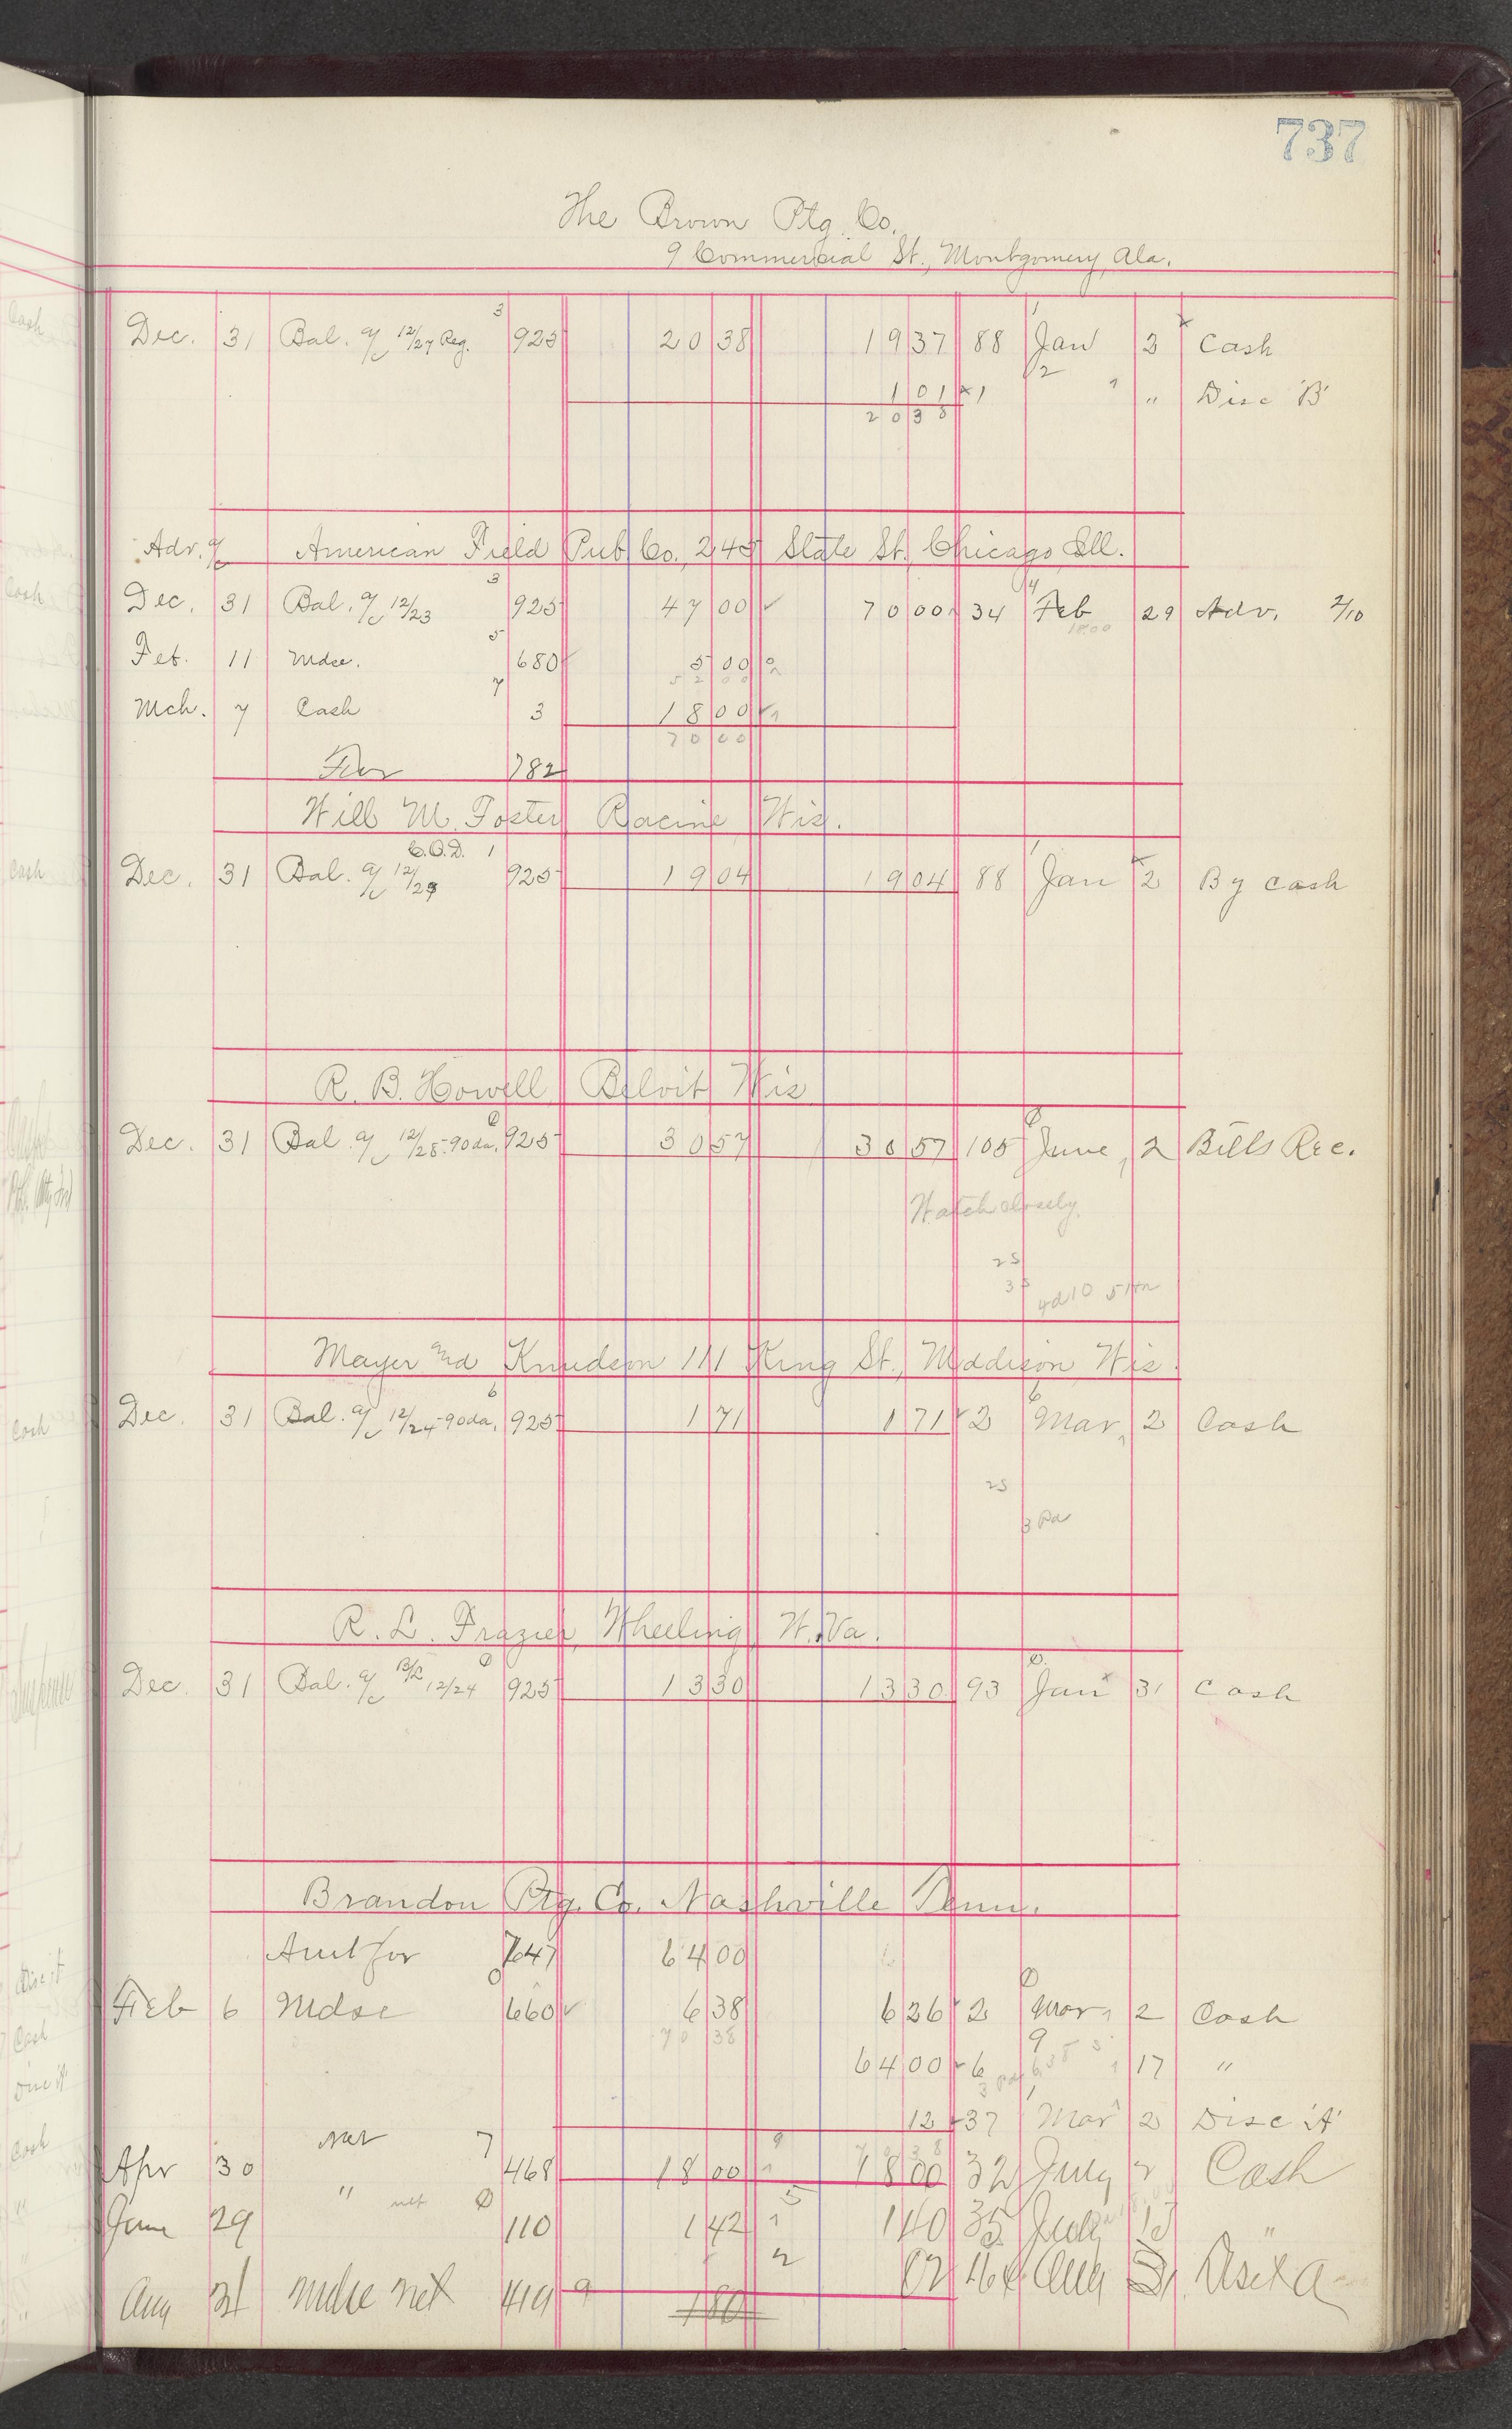 737
The Brown Ptg. Co.
9 Commercial St., Montgomery, Ala.
3 1
Dec. 31 Bal. a/c 12/27 Reg. 925 20 38 19 37 88 Jan 3 Cash
2
1 01 1 " Disc 'B'
20 38
Adv. a/c American Field Pub Co., 245 State St., Chicago Ill.
3 4
Dec. 31 Bal. a/c 12/23 925 47 00 70 00 34 Feb 29 Adv. 2/10
18 00
5
Feb. 11 Mdse. 680 5 00
52 00
7
Mch. 7 Cash 3 18 00
70 00
For 782
Will M. Foster Racine Wis.
C.O.D. 1 1
Dec. 31 Bal. a/c 12/29 925 19 04 19 04 88 Jan 2 By cash
R. B. Howell Beloit Wis
Dec. 31 Bal. a/c 12/28-90da. 925 30 57 30 57 105 June 2 Bills Rec.
Watch closely
25
35
Mayer and Knudson 111 King St., Madison Wis.
6 6
Dec. 31 Bal. a/c 12/24-90da. 925 1 71 1 71 2 Mar. 2 Cash
25
3 Pd
R. L. Frazier, Wheeling, W. Va.
Dec. 31 Bal. a/c B/L 12/24 925 13 30 13 30 93 Jan 31 Cash
Brandon Ptg. Co. Nashville Tenn.
Amt for 747 64 00
Feb 6 Mdse 660 6 38 6 26 2 Mar. 2 Cash
70 38 9
64 00 6 17 "
12 37 Mar 2 Disc 'A'
net 7
Apr 30 " 468 18 00 18 00 32 July 2 Cash
net
June 29 110 1 42 1 40 35 July 13 "
02 Aug
Aug 31 mdse net 419 9 1 80